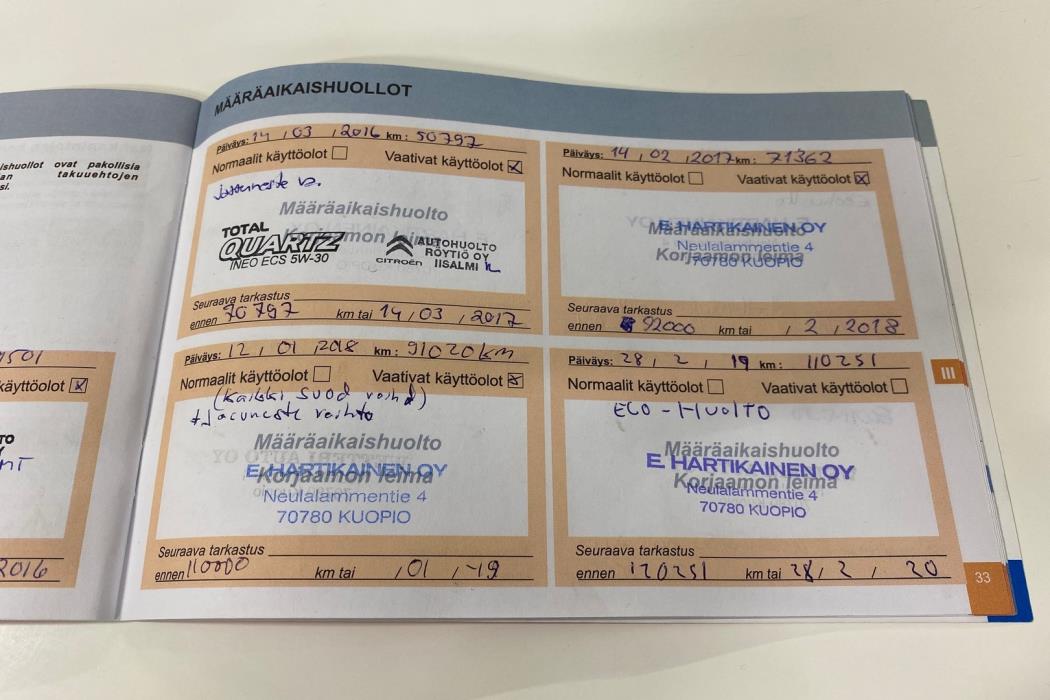 MÄÄRÄAIKAISHUOLLOT
ishuollot ovat pakollisia
an takuuehtojen
si.
Päiväys: 14 / 03 / 2016 km: 50797
Normaalit käyttöolot Vaativat käyttöolot x
Määräaikaishuolto
Korjaamon leima
TOTAL
QUARTZ
INEO ECS 5W-30
CITROËN
AUTOHUOLTO
RÖYTIÖ OY
IISALMI
Seuraava tarkastus
ennen 70797 km tai 14 / 03 / 2017
Päiväys: 14 / 02 / 2017 km: 71362
Normaalit käyttöolot Vaativat käyttöolot x
Määräaikaishuolto
Korjaamon leima
E. HARTIKAINEN OY
Neulalammentie 4
70780 KUOPIO
Seuraava tarkastus
ennen 92000 km tai / 2 / 2018
7501
käyttöolot x
TO
2016
Päiväys: 12 / 01 / 2018 km: 91020 km
Normaalit käyttöolot Vaativat käyttöolot x
(kaikki suod vaihd)
vaihto
Määräaikaishuolto
Korjaamon leima
E. HARTIKAINEN OY
Neulalammentie 4
70780 KUOPIO
Seuraava tarkastus
ennen 110000 km tai / 01 / -19
Päiväys: 28 / 2 / 19 km: 110251
Normaalit käyttöolot Vaativat käyttöolot
ECO-HUOLTO
Määräaikaishuolto
Korjaamon leima
E. HARTIKAINEN OY
Neulalammentie 4
70780 KUOPIO
Seuraava tarkastus
ennen 120251 km tai 28 / 2 / 20
III
33